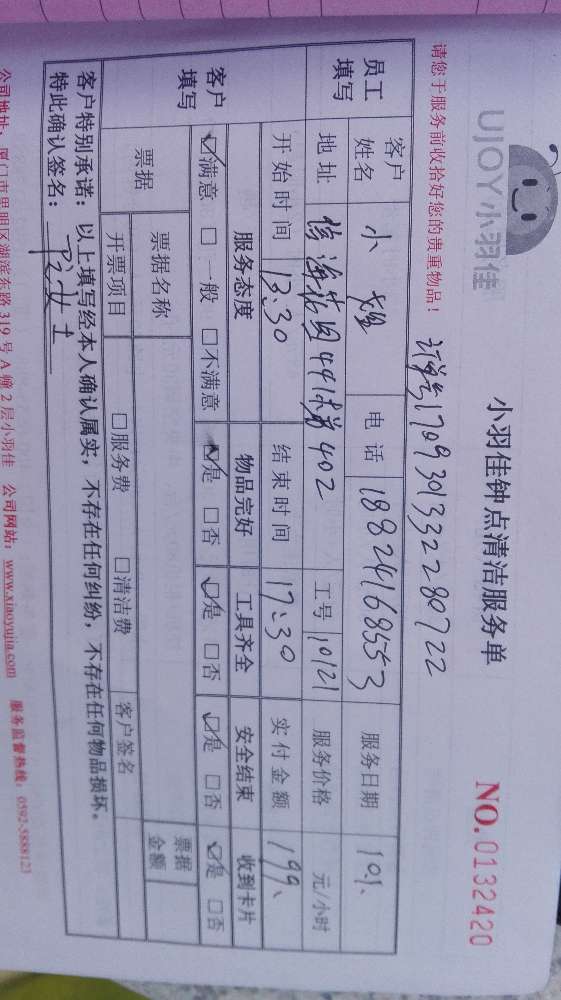 UJOY小羽佳
小羽佳钟点清洁服务单
NO.0132420
请您于服务前收拾好您的贵重物品！
订单号1709301332280722
员工填写 客户姓名 小 电话 18824168553 服务日期 10.1.
地址 海 441 402 工号 10121 服务价格 元/小时
客户填写 开始时间 13:30 结束时间 17:30 实付金额 199.
服务态度 物品完好 工具齐全 安全结束 收到卡片
☑满意 □一般 □不满意 ☑是 □否 ☑是 □否 ☑是 □否 ☑是 □否
票据 票据名称 票据金额
开票项目 □服务费 □清洁费 客户签名
客户特别承诺：以上填写经本人确认属实，不存在任何纠纷，不存在任何物品损坏。
特此确认签名：女士
公司地址：厦门市思明区湖滨东路319号A幢2层小羽佳 公司网站：www.xiaoyujia.com 服务监督热线：0592-5888123